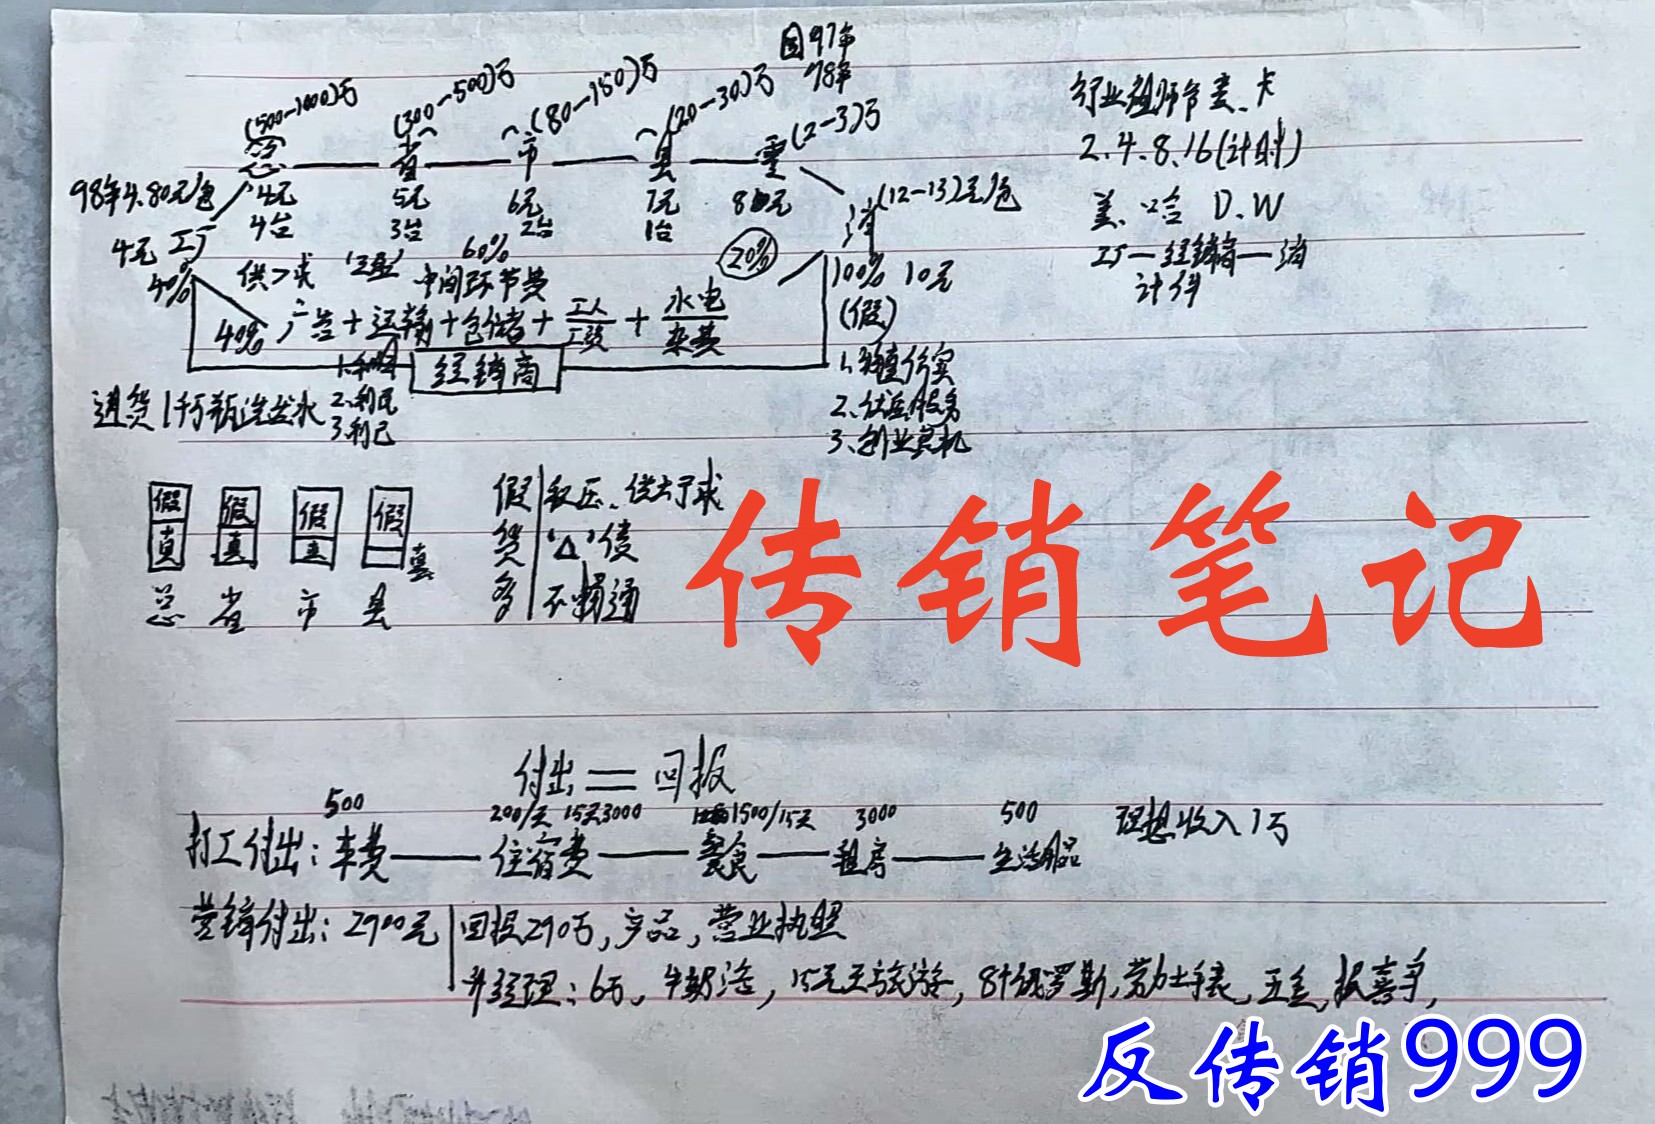 国97年
98年
(500-1000)万 (300-500)万 (80-150)万 (20-30)万 (2-3)万
总 省 市 县 零
98年4.80元/包 4元 5元 6元 7元 8元
4台 3台 2台 1台
消 (12-13)元/包
4元 工厂
40% 供>求 60% 20%
中间环节费
100% 10元
(假)
40% 广告+运输+仓储+工人工资+水电杂费
经销商
进货1千万瓶洗发水
2.利民
3.利己
1.
2.优质服务
3.创业良机
行业祖师爷 卡
2.4.8.16(计时)
美 哈 D.W
工厂—经销商—消
计件
假 假 假 假
真 真 真 真
总 省 市 县
假 积压、供大于求
货 '△'债
多 不畅通
传销笔记
付出=回报
500 200/天 15天3000 1500/15天 3000 500
打工付出:车费—住宿费—餐食—租房—生活用品 理想收入1万
营销付出:2900元 回报290万,产品,营业执照
升经理:6万, 15天旅游, 俄罗斯,劳力士手表,五金,报喜鸟,
反传销999